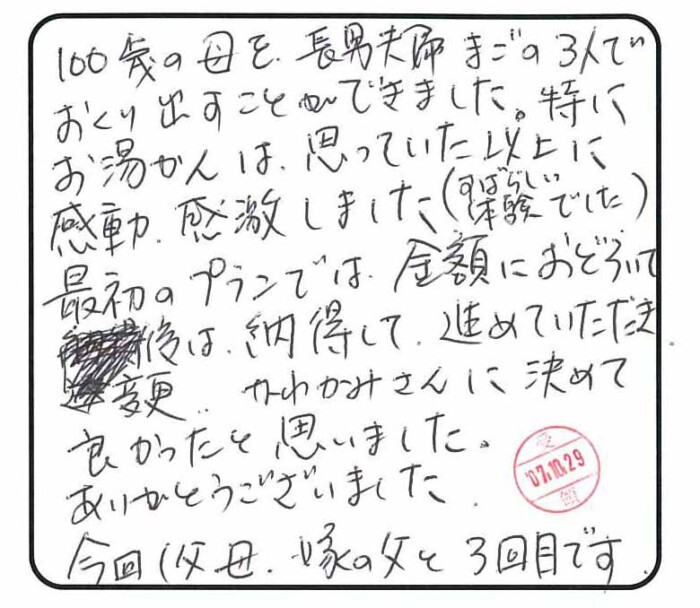 100歳の母を、長男夫婦 まごの3人で
おくり出すことができました。特に
お湯かんは、思っていた以上に
感動、感激しました(すばらしい体験でした)
最初のプランでは、金額におどろいて
後は、納得して、進めていただき
変更、かわかみさんに決めて
良かったと思いました。
ありがとうございました。
今回(父母、嫁の父と3回目です
'07.10.29